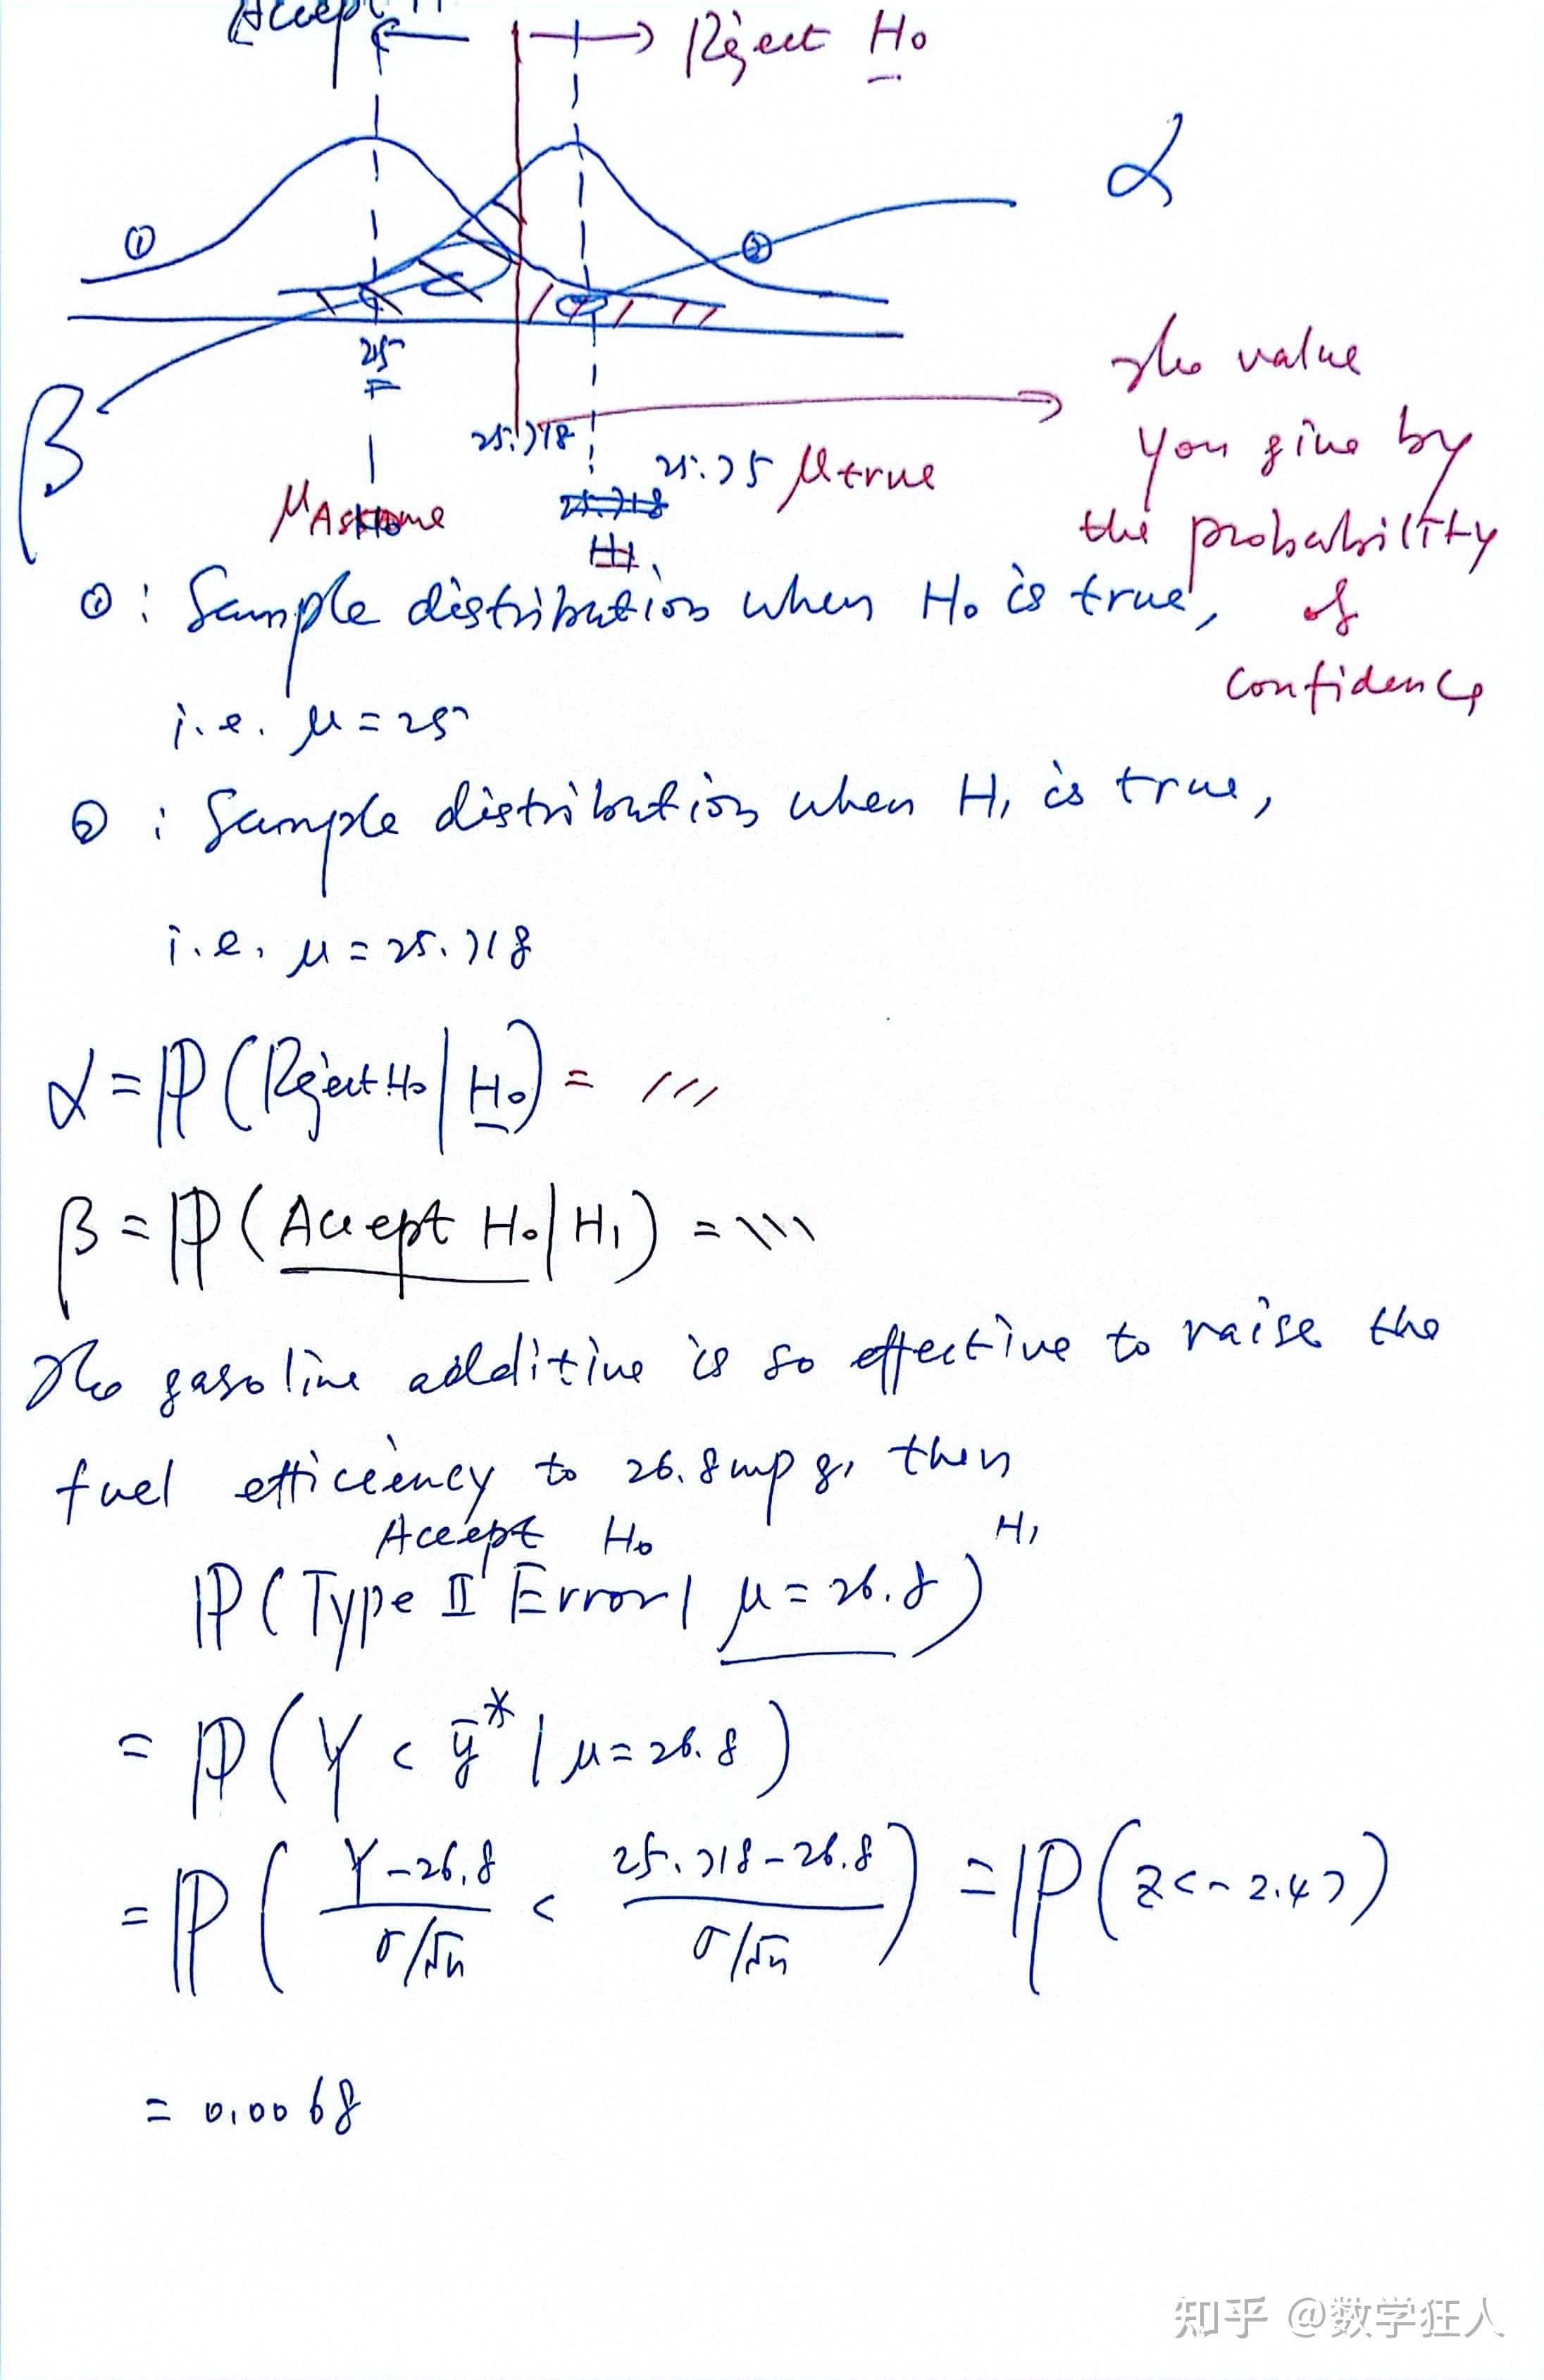 Accept H
Reject H₀
α
①
②
25
β
25.718
25.75 μtrue
25.718
H₁
The value
you give by
the probability
of
confidence
①: Sample distribution when H₀ is true,
i.e. μ = 25
②: Sample distribution when H₁ is true,
i.e. μ = 25.718
α = ℙ(Reject H₀ | H₀) = ///
β = ℙ(Accept H₀ | H₁) = \\\
The gasoline additive is so effective to raise the
fuel efficiency to 26.8 mpg, then
Accept H₀ H₁
ℙ(Type II Error | μ = 26.8)
= ℙ(Y < ȳ* | μ = 26.8)
= ℙ((Y - 26.8)/(σ/√n) < (25.718 - 26.8)/(σ/√n)) = ℙ(Z < -2.47)
= 0.0068
知乎 @数学狂人